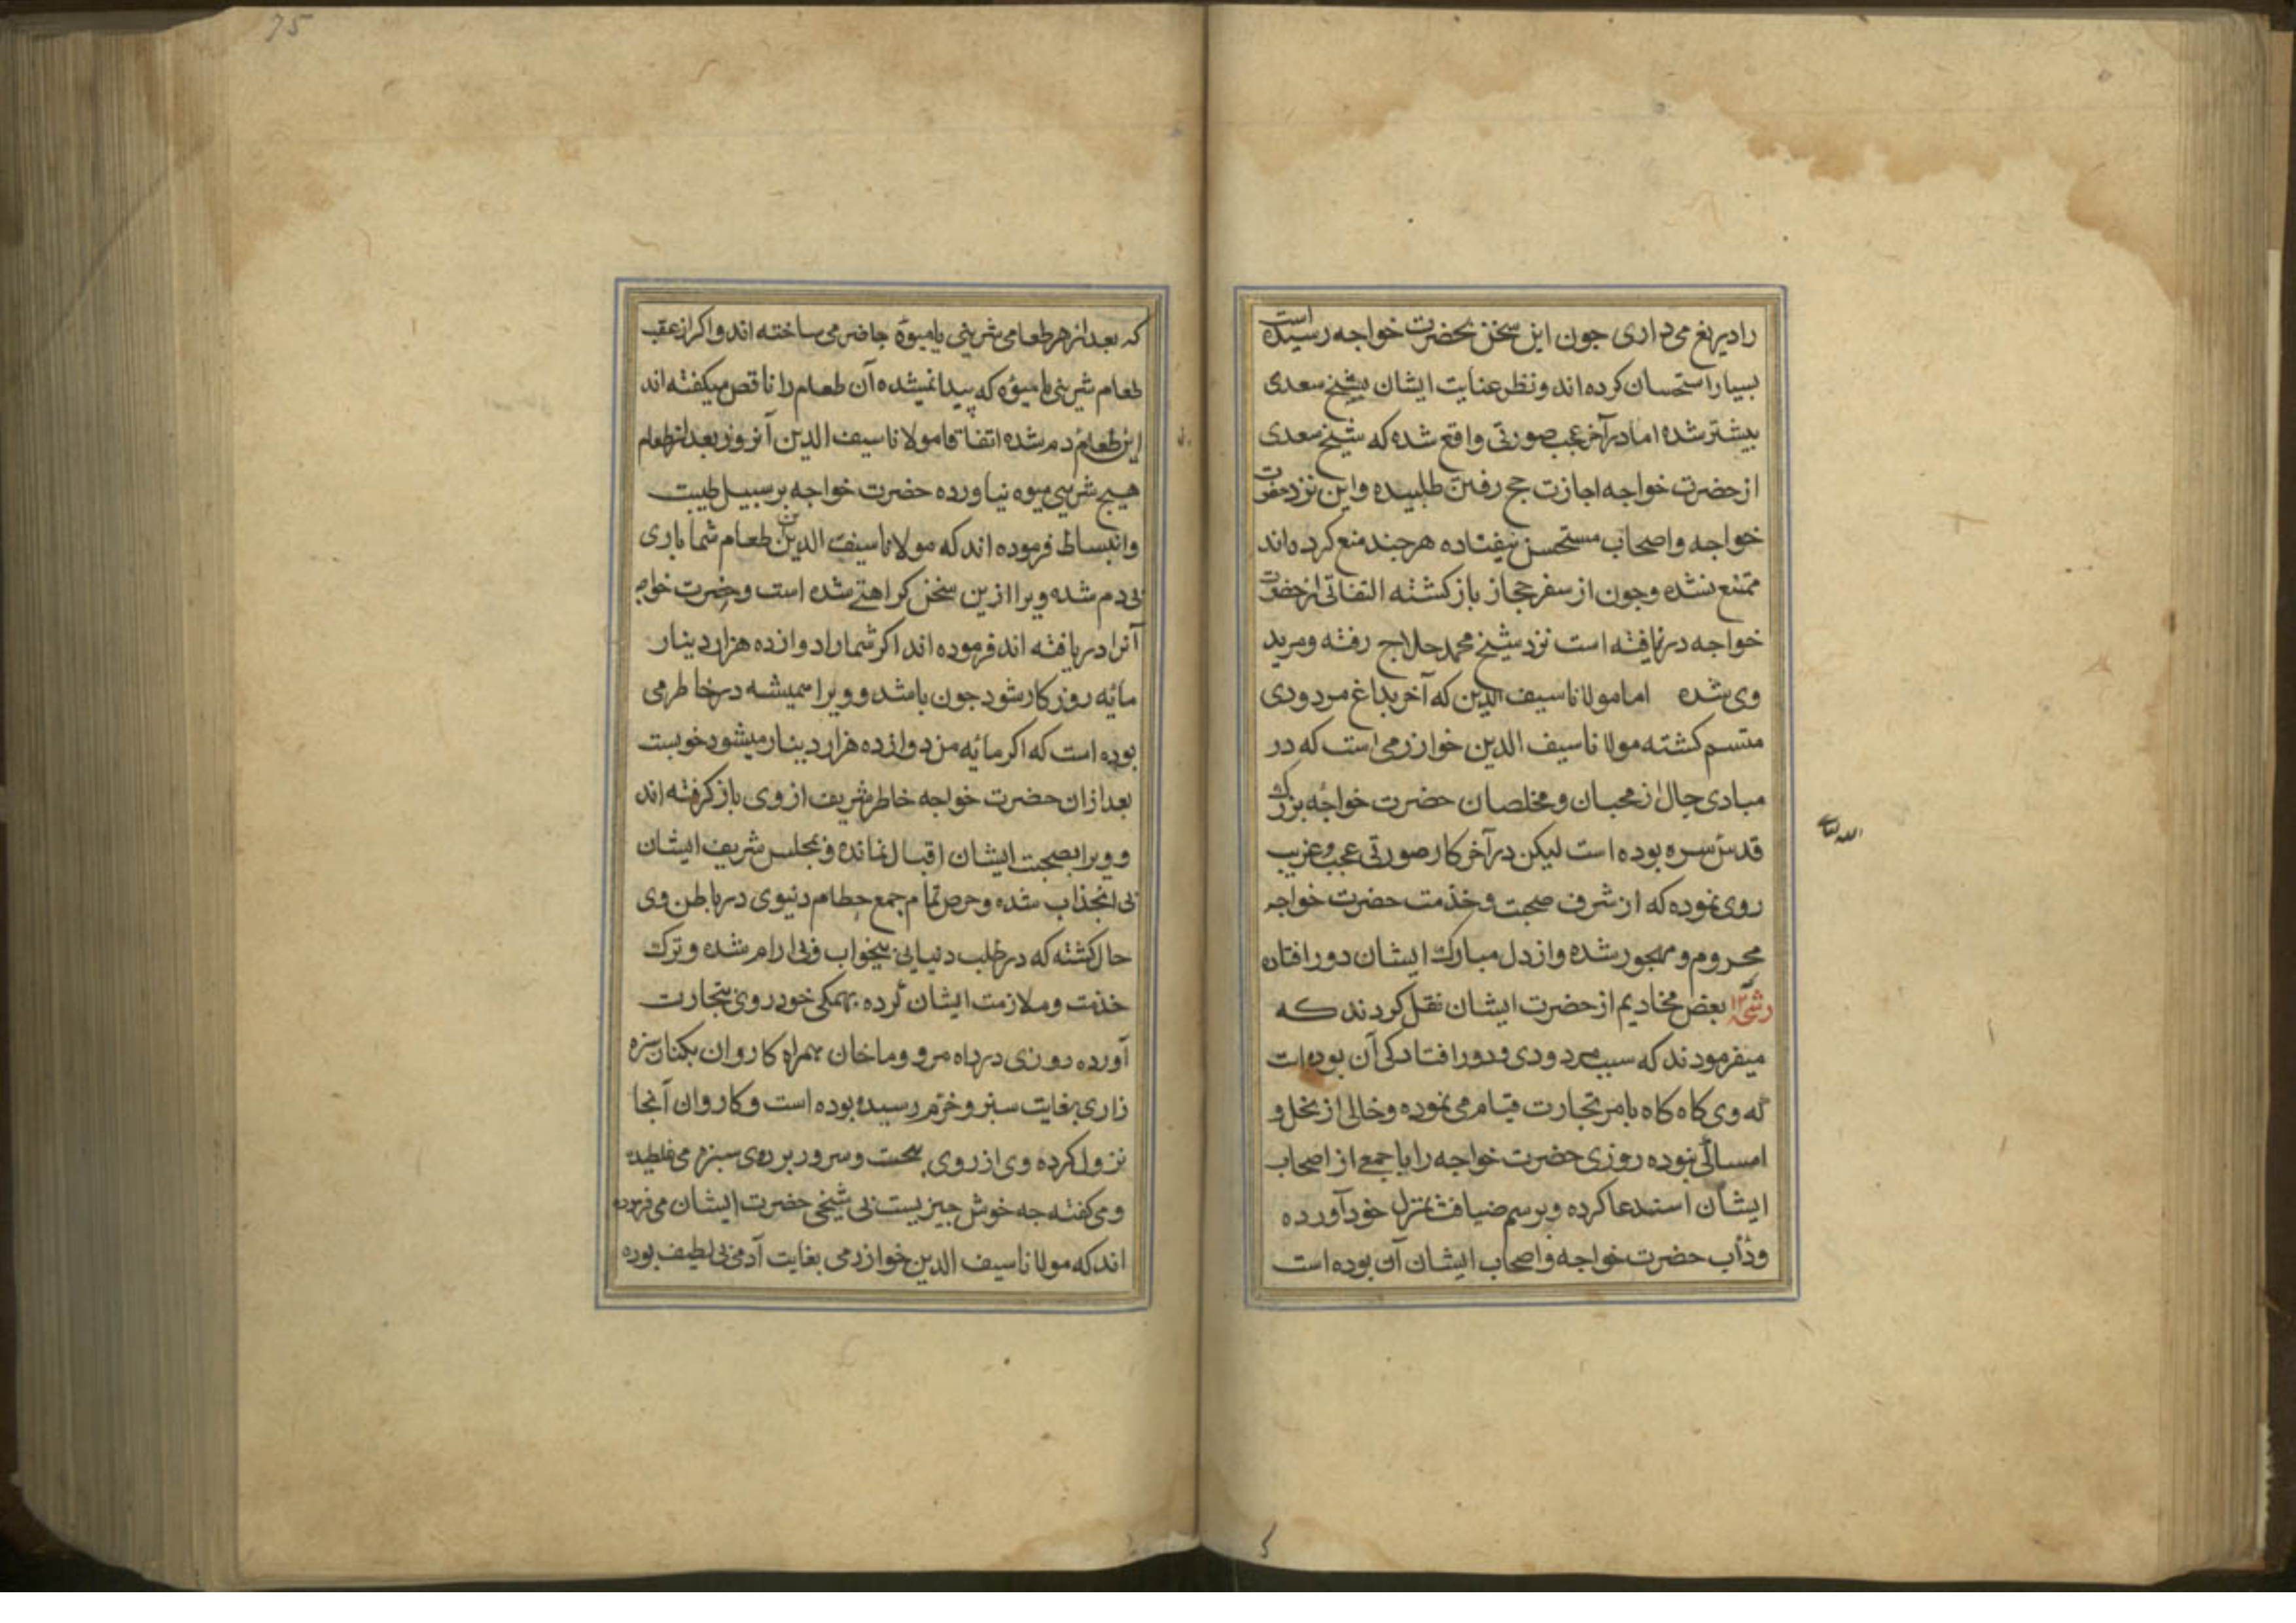 را دریغ می داری جون این سخن بحضرت خواجه رسیده است
بسیار استحسان کرده اند و نظر عنایت ایشان بشیخ سعدی
بیشتر شده اما در آخر عجب صورتی واقع شده که شیخ سعدی
از حضرت خواجه اجازت حج رفتن طلبیده و این نزد حضرت
خواجه و اصحاب مستحسن نیفتاده هرجند منع کرده اند
ممتنع نشده و جون از سفر حجاز باز کشته التفاتی از حضرت
خواجه در نیافته است نزد شیخ محمد حلاج رفته و مرید
وی شده اما مولانا سیف الدین که آخر بداغ مردودی
متسم کشته مولانا سیف الدین خوارزمی است که در
مبادی حال از محبان و مخلصان حضرت خواجه بزرک
قدس سره بوده است لیکن در آخر کار صورتی عجب و غریب
روی نموده که از شرف صحبت و خدمت حضرت خواجه
محروم و مهجور شده و از دل مبارک ایشان دور افتاده
رشحه بعض مخادیم از حضرت ایشان نقل کردند که
میفرمودند که سبب مردودی و دور افتادکی آن بوده است
که وی کاه کاه بامر تجارت قیام می نموده و خالی از بخل و
امساکی نبوده روزی حضرت خواجه را با جمعی از اصحاب
ایشان استدعا کرده و برسم ضیافت بمنزل خود آورده
و دأب حضرت خواجه و اصحاب ایشان آن بوده است
75
که بعد از هر طعامی شرینی یا میوهٔ حاضر می ساخته اند و اکر از عقب
طعام شرینی یا میوه که پیدا نمیشده آن طعام را ناقص میکفته اند
این طعام دم شده اتفاقا مولانا سیف الدین آنروز بعد از طعام
هیچ شرینی میوه نیاورده حضرت خواجه بر سبیل طیبت
و انبساط فرموده اند که مولانا سیف الدین طعام شما باری
بی دم شده ویرا ازین سخن کراهتی شده است و حضرت خواجه
آنرا دریافته اند فرموده اند اکر شما را دوازده هزار دینار
مایه روزکار شود جون باشد و ویرا همیشه در خاطر می
بوده است که اکر مایه من دوازده هزار دینار میشود خوبست
بعد ازان حضرت خواجه خاطر شریف از وی باز کرفته اند
و ویرا بصحبت ایشان اقبال نمانده و بمجلس شریف ایشان
بی انجذاب شده و حرص تمام جمع حطام دنیوی در باطن وی
حال کشته که در طلب دنیا بی بیخواب و بی ارام شده و ترک
خدمت و ملازمت ایشان کرده بهمکی خود روی بتجارت
آورده روزی در راه مرو و ماخان همراه کاروان بکنار سبزه
زاری بغایت سبز و خرم رسیده بوده است و کاروان آنجا
نزول کرده وی از روی بهجت و سرور بر روی سبزه می غلطیده
و می کفته جه خوش جیزیست بی شیخی حضرت ایشان می فرموده
اند که مولانا سیف الدین خوارزمی بغایت آدمی لطیف بوده